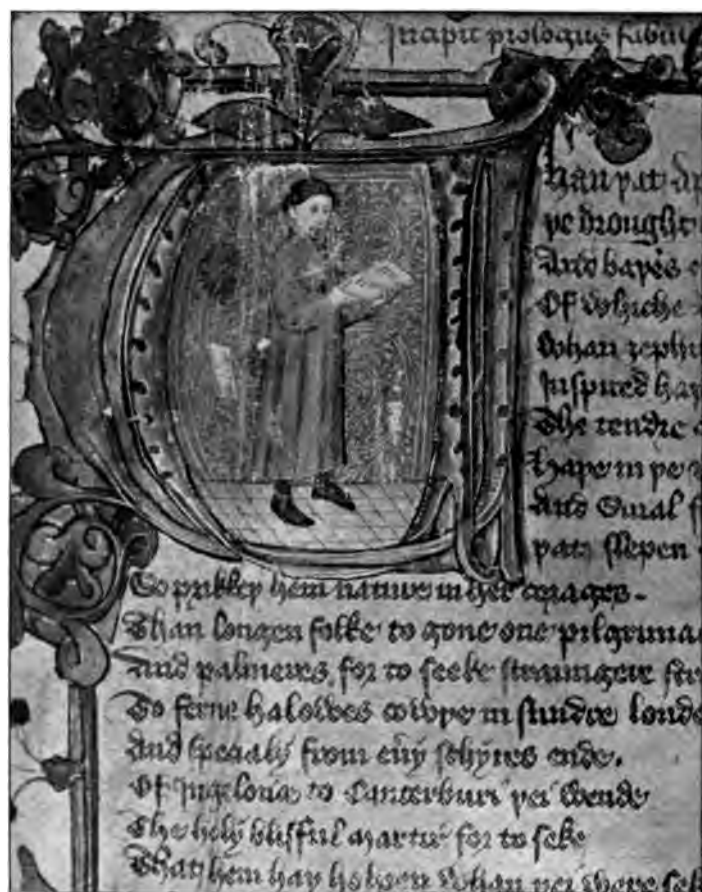 Incipit prologus fabul
Whan þat Ap
þe drought
And baþes e
Of whiche
Whan zephi
Inspired haþ
The tendre c
Haþe in þe
And smal f
þat slepen
So prikkeþ hem nature in her corages.
Than longen folke to gone one pilgrima
And palmeres for to seeke straungere str
To ferne halowes cowþe in sundre londe
And specialy from eůy schyres ende.
Of Ingelond to Canterburi þei wende
The holy blisful martir for to seke
That hem haþ holpen whan þei were sek